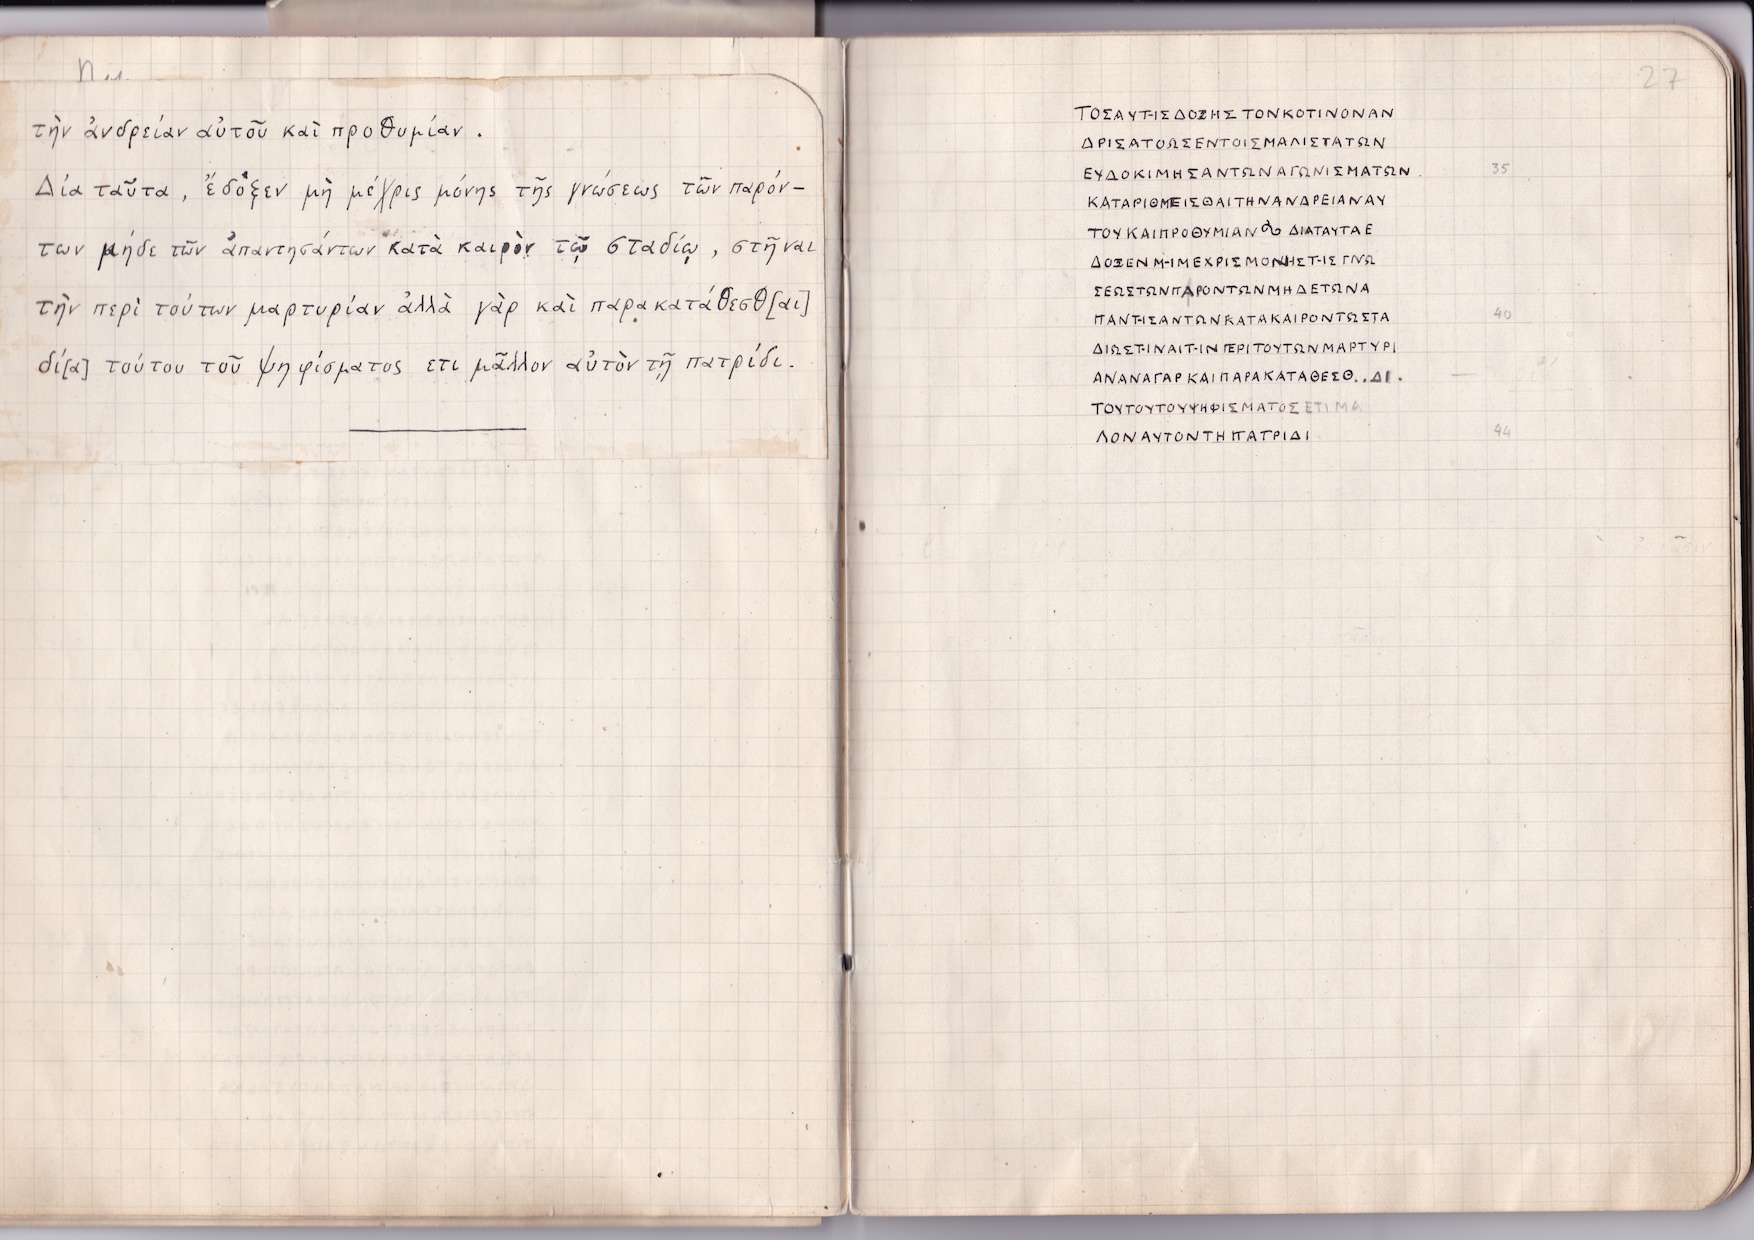 τὴν ἀνδρείαν αὐτοῦ καὶ προθυμίαν .
Δία ταῦτα , ἔδοξεν μὴ μέχρις μόνης τῆς γνώσεως τῶν παρόν–
των μήδε τῶν ἀπαντησάντων κατὰ καιρὸν τῷ σταδίῳ , στῆναι
τὴν περὶ τούτων μαρτυρίαν ἀλλὰ γὰρ καὶ παρακατάθεσθ[αι]
δί[α] τούτου τοῦ ψηφίσματος ετι μᾶλλον αὐτὸν τῇ πατρίδι.
27
ΤΟΣΑΥΤΗΣΔΟΞΗΣ ΤΟΝΚΟΤΙΝΟΝΑΝ
ΔΡΙΣΑΤΟΩΣΕΝΤΟΙΣΜΑΛΙΣΤΑΤΩΝ
ΕΥΔΟΚΙΜΗΣΑΝΤΩΝΑΓΩΝΙΣΜΑΤΩΝ 35
ΚΑΤΑΡΙΘΜΕΙΣΘΑΙΤΗΝΑΝΔΡΕΙΑΝΑΥ
ΤΟΥΚΑΙΠΡΟΘΥΜΙΑΝ ΔΙΑΤΑΥΤΑΕ
ΔΟΞΕΝΜΗΜΕΧΡΙΣΜΟΝΗΣΤΗΣΓΝΩ
ΣΕΩΣΤΩΝΠΑΡΟΝΤΩΝΜΗΔΕΤΩΝΑ
ΠΑΝΤΗΣΑΝΤΩΝΚΑΤΑΚΑΙΡΟΝΤΩΣΤΑ 40
ΔΙΩΣΤΗΝΑΙΤΗΝΠΕΡΙΤΟΥΤΩΝΜΑΡΤΥΡΙ
ΑΝΑΝΑΓΑΡΚΑΙΠΑΡΑΚΑΤΑΘΕΣΘ..ΔΙ.
ΤΟΥΤΟΥΤΟΥΨΗΦΙΣΜΑΤΟΣΕΤΙΜΑ
ΛΟΝΑΥΤΟΝΤΗΠΑΤΡΙΔΙ 44